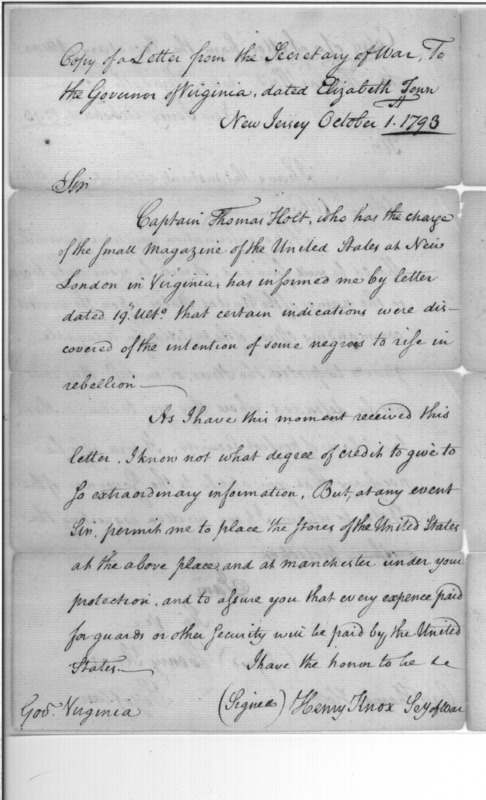 Copy of a Letter from the Secretary of War, To
the Governor of Virginia, dated Elizabeth Town
New Jersey October 1. 1793
Sir
Captain Thomas Holt, who has the charge
of the small Magazine of the United States at New
London in Virginia, has informed me by letter
dated 19th Ulto that certain indications were dis-
covered of the intention of some negros to rise in
rebellion—
As I have this moment received this
letter, I know not what degree of credit to give to
so extraordinary information, But, at any event
Sir, permit me to place the Stores of the United States
at the above place, and at manchester under your
protection, and to assure you that every expence paid
for guards or other Security will be paid by the United
States.— I have the honor to be &c
(Signed) Henry Knox Secy of War
Govr. Virginia